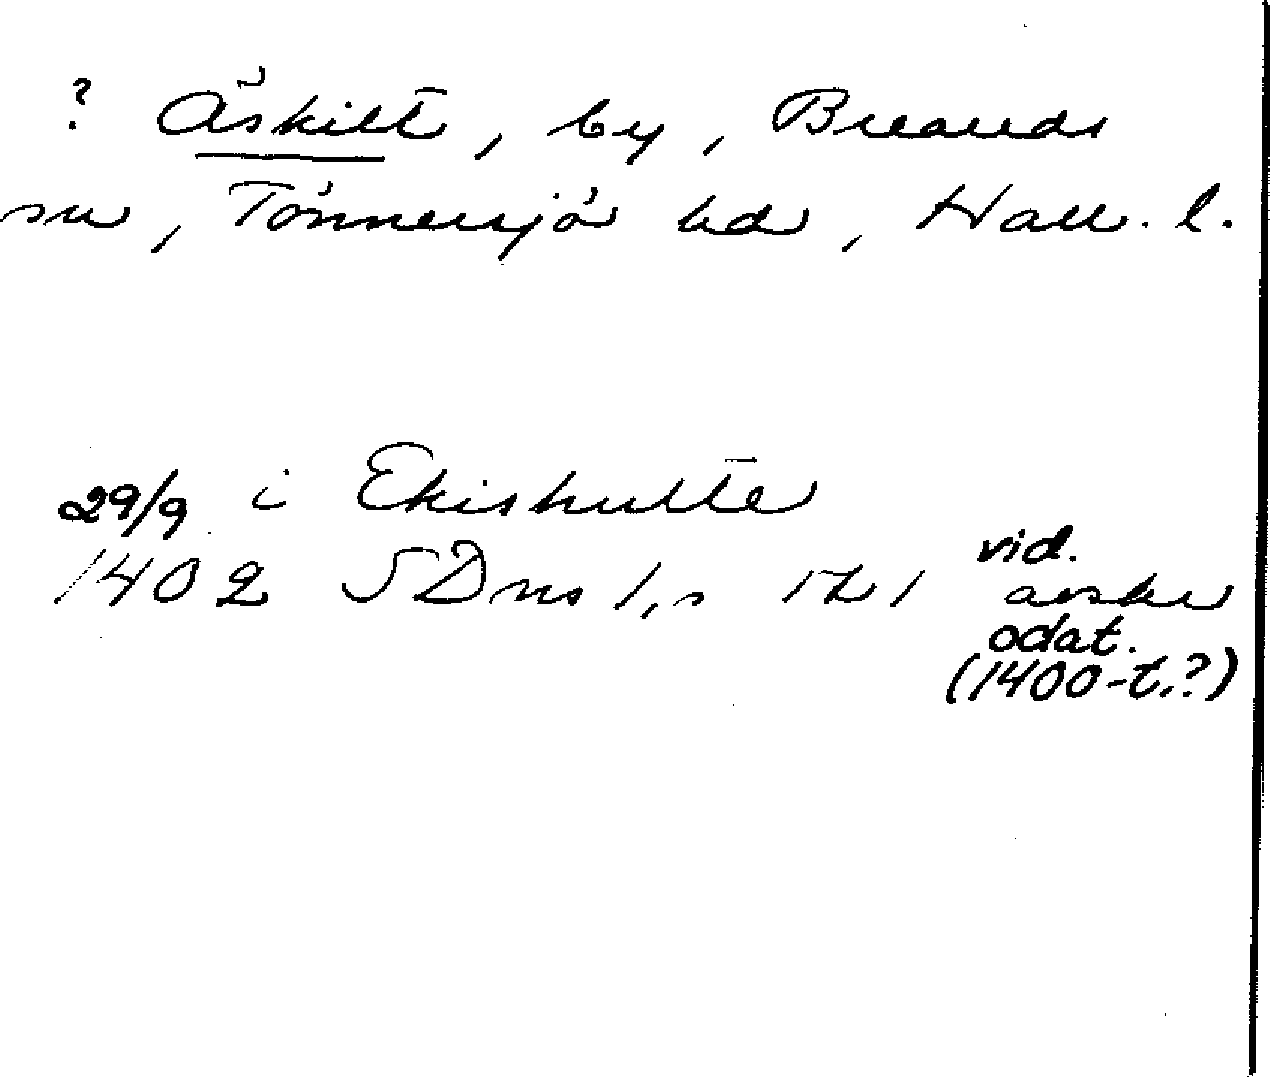 ? Äskilt, by, Breareds
sn, Tönnersjö hd, Hall. l.
29/9 i Ekishulte
1402 SDns 1, s 121 vid.
avskr
odat.
(1400-t.?)